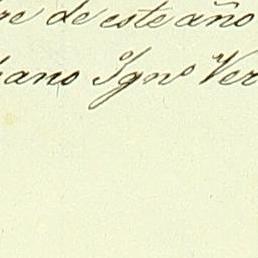 re de este año
ano Ygnº Ver